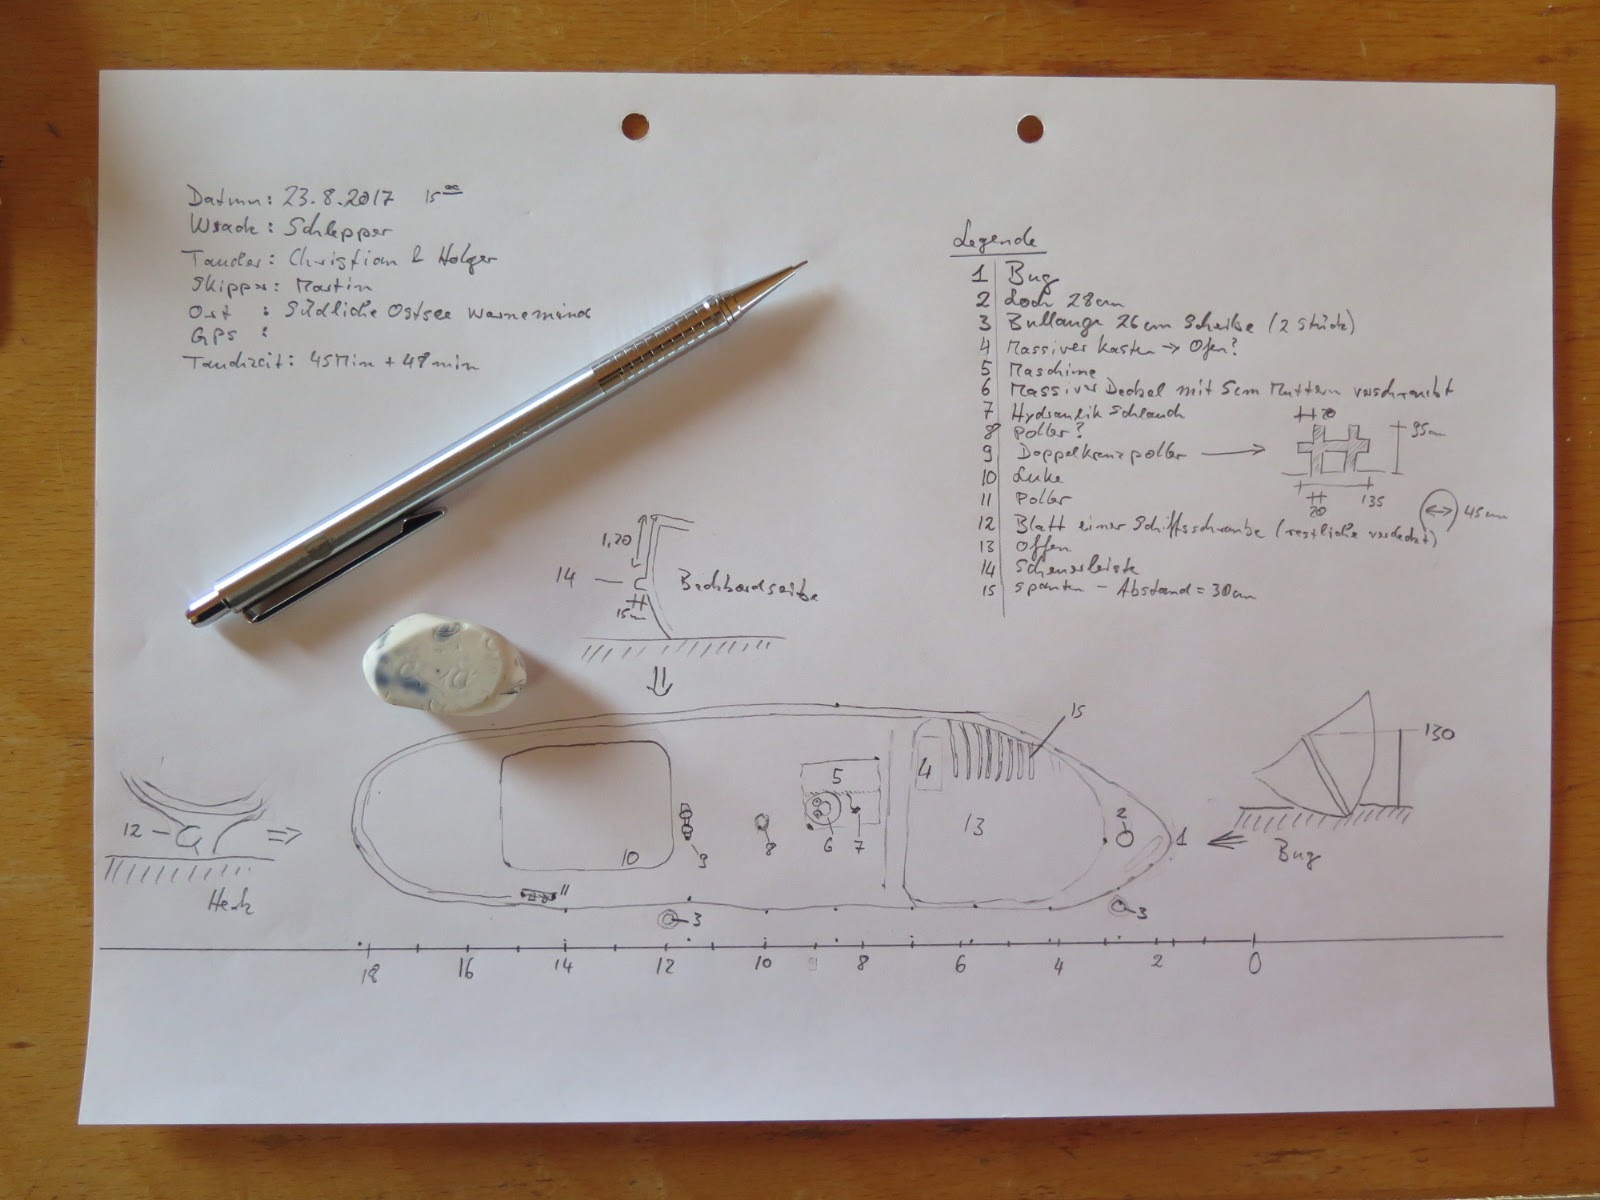 Datum: 23.8.2017 15⁰⁰
Wrack: Schlepper
Taucher: Christian & Holger
Skipper: Martin
Ort : Südliche Ostsee Warnemünde
GPS :
Tauchzeit: 45Min + 48min
Legende
1 Bug
2 Loch 28cm
3 Bullauge 26cm Scheibe (2 Stück)
4 Massiver Kasten → Ofen?
5 Maschine
6 Massiver Deckel mit 5cm Muttern verschraubt
7 Hydraulik Schlauch
8 Poller?
9 Doppelkreuzpoller →
10 Luke
11 Poller
12 Blatt einer Schiffsschraube (restliche verdeckt)
13 Offen
14 Scheuerleiste
15 Spanten - Abstand = 30cm
20
95cm
20
135
45cm
1,20
14
15cm
Backbordseite
15
130
12
Heck
10
9
8
5
6
7
4
13
2
1
Bug
11
3
3
18 16 14 12 10 9 8 6 4 2 0